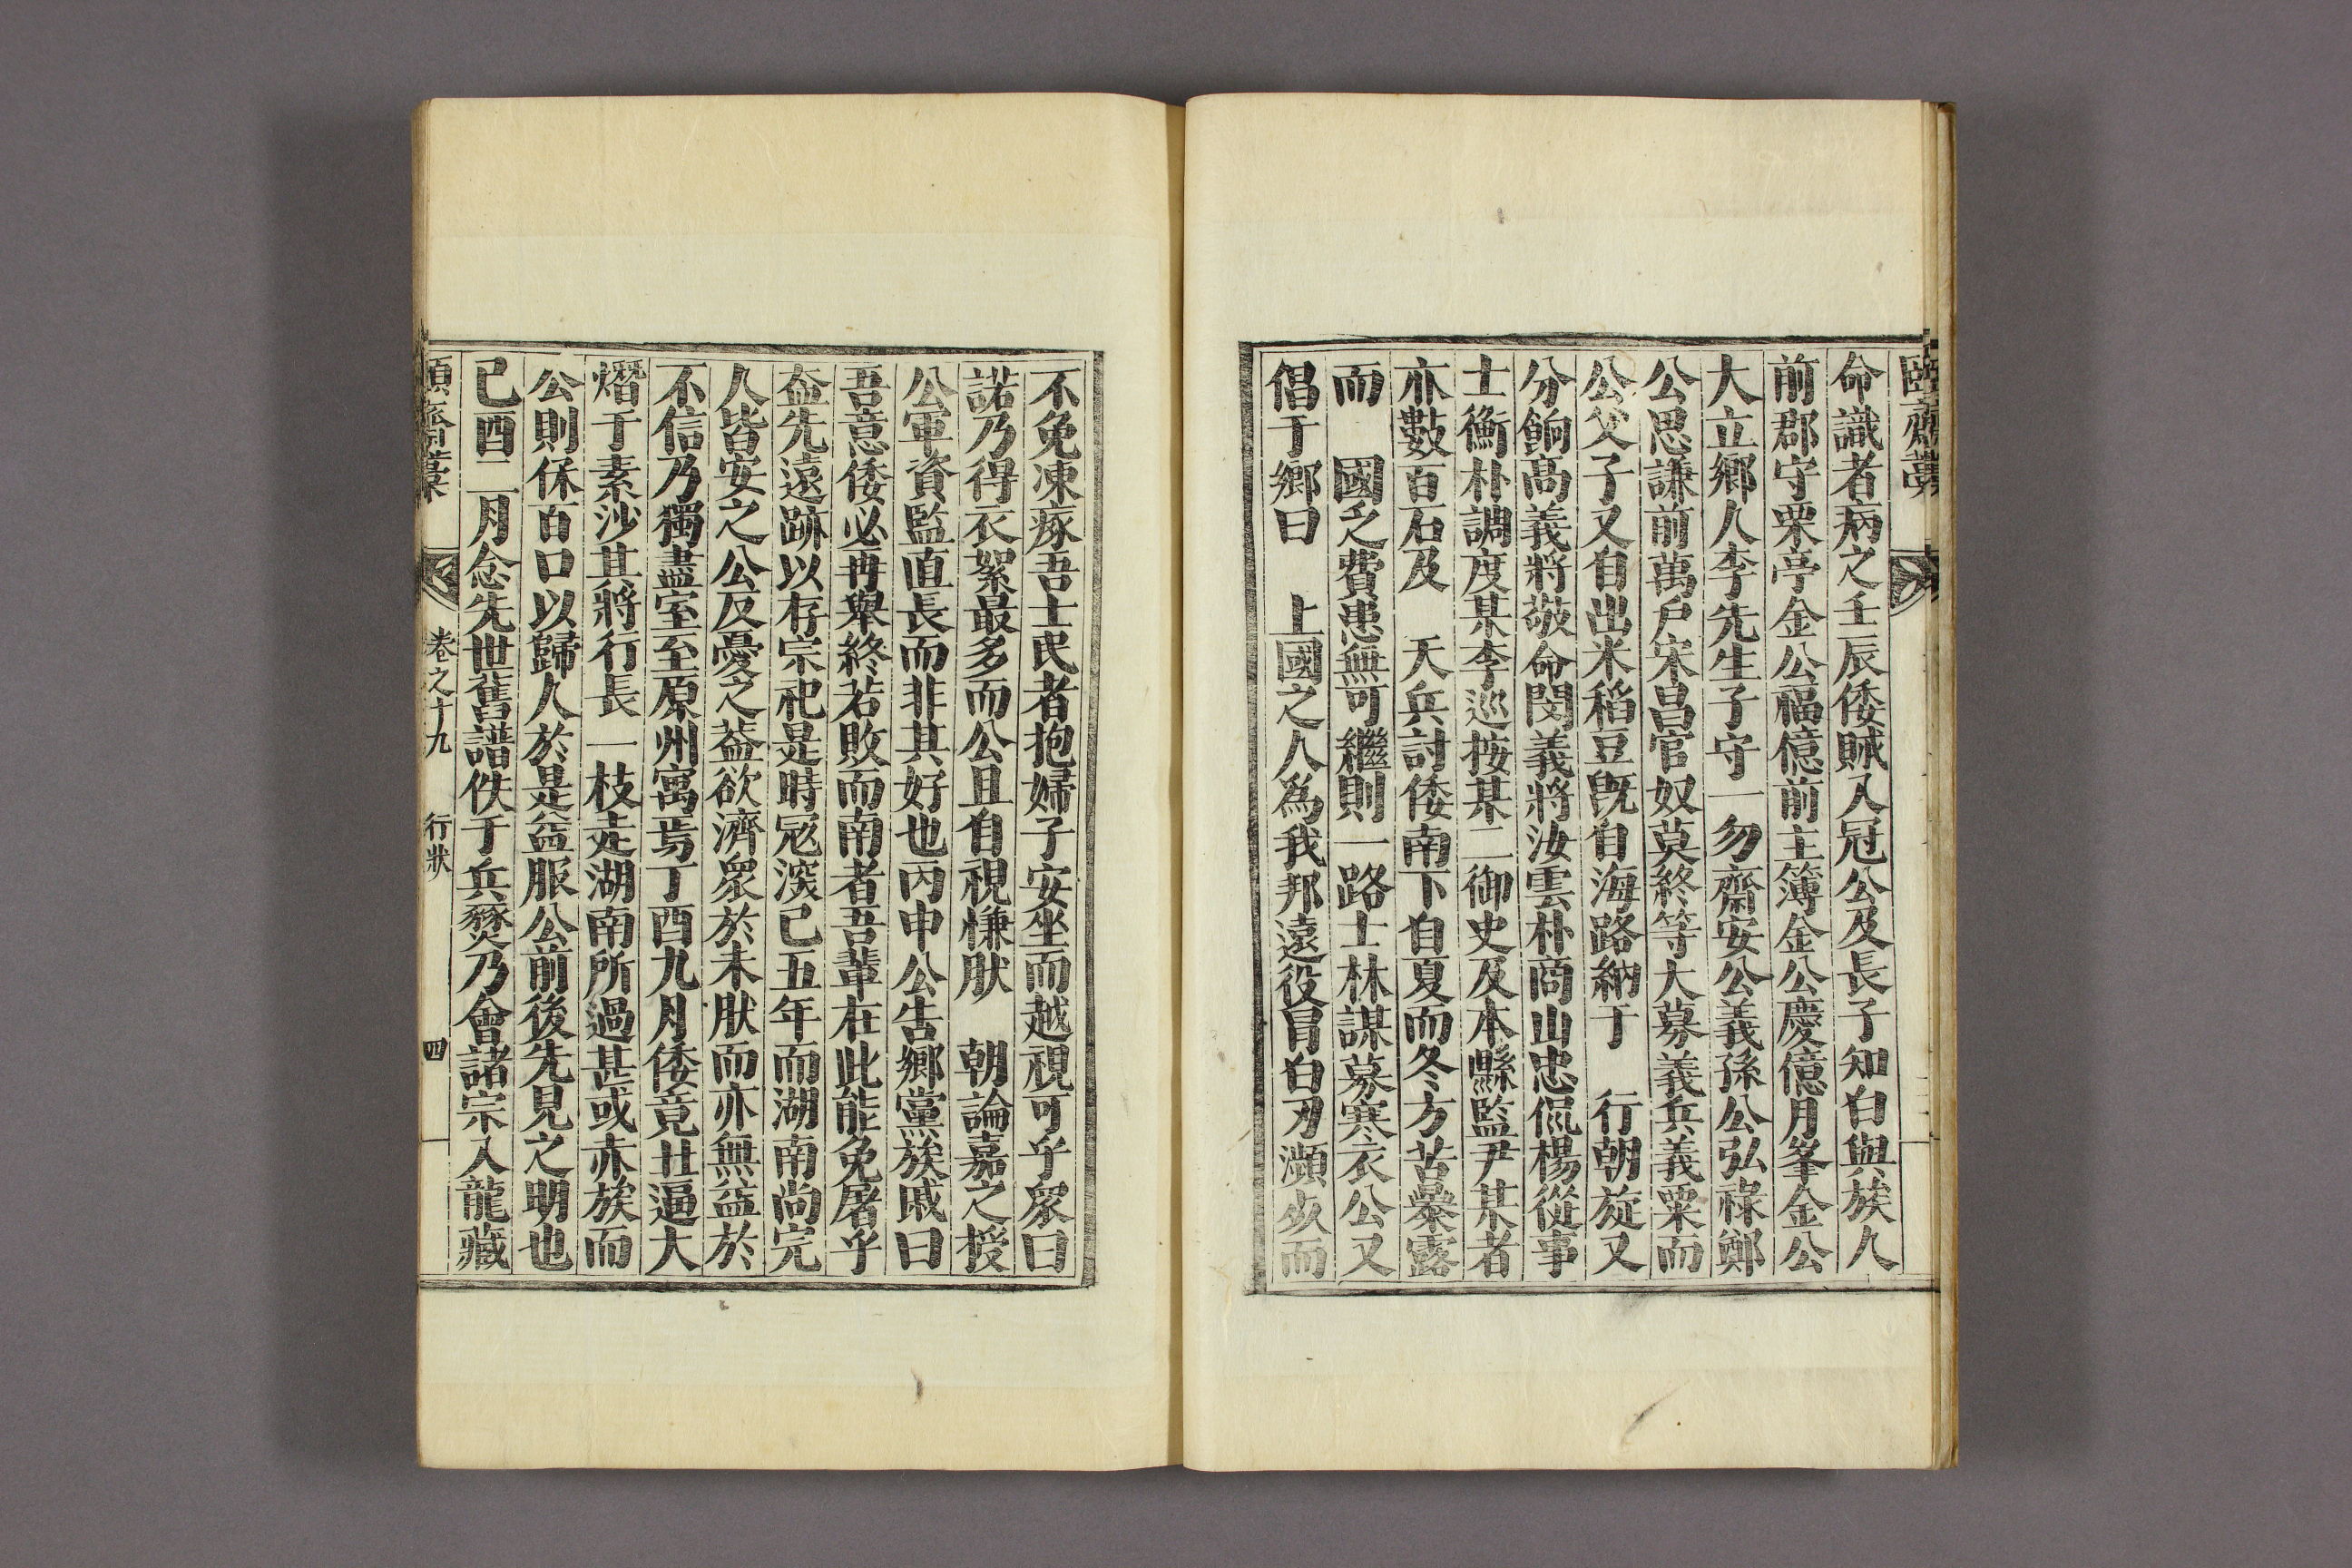 命識者病之壬辰倭賊入冠公及長子知白與族人
前郡守栗亭金公福億前主簿金公慶億月峯金公
大立鄉人李先生子守一勿齋安公義孫公弘祿鄭
公思謙前萬戶宋昌官奴莫終等大募義兵義粟而
公父子又自出米稻豆旣自海路納于　行朝旋又
分餉高義將敬命閔義將汝雲朴商山忠侃楊從事
士衡朴調度某李巡按某二御史及本縣監尹某者
亦數百石及　天兵討倭南下自夏而冬方苦暴露
而　國之費患無可繼則一路士林謀募寒衣公又
倡于鄉曰　上國之人爲我邦遠役冒白刃瀕死而
不免凍瘃吾士民者抱婦子安坐而越視可乎衆曰
諾乃得衣絮最多而公且自視慊肰　朝論嘉之授
公軍資監直長而非其好也丙申公告鄉黨族戚曰
吾意倭必再舉終若敗而南者吾輩在此能免屠乎
盍先遠跡以存宗祀是時冦深已五年而湖南尚完
人皆安之公反憂之葢欲濟衆於未肰而亦無益於
不信乃獨盡室至原州寓焉丁酉九月倭竟丑逼大
熸于素沙其將行長一枝走湖南所過甚或赤族而
公則保百口以歸人於是益服公前後先見之明也
己酉二月念先世舊譜佚于兵燹乃會諸宗入龍藏
卷之十九　行狀　四